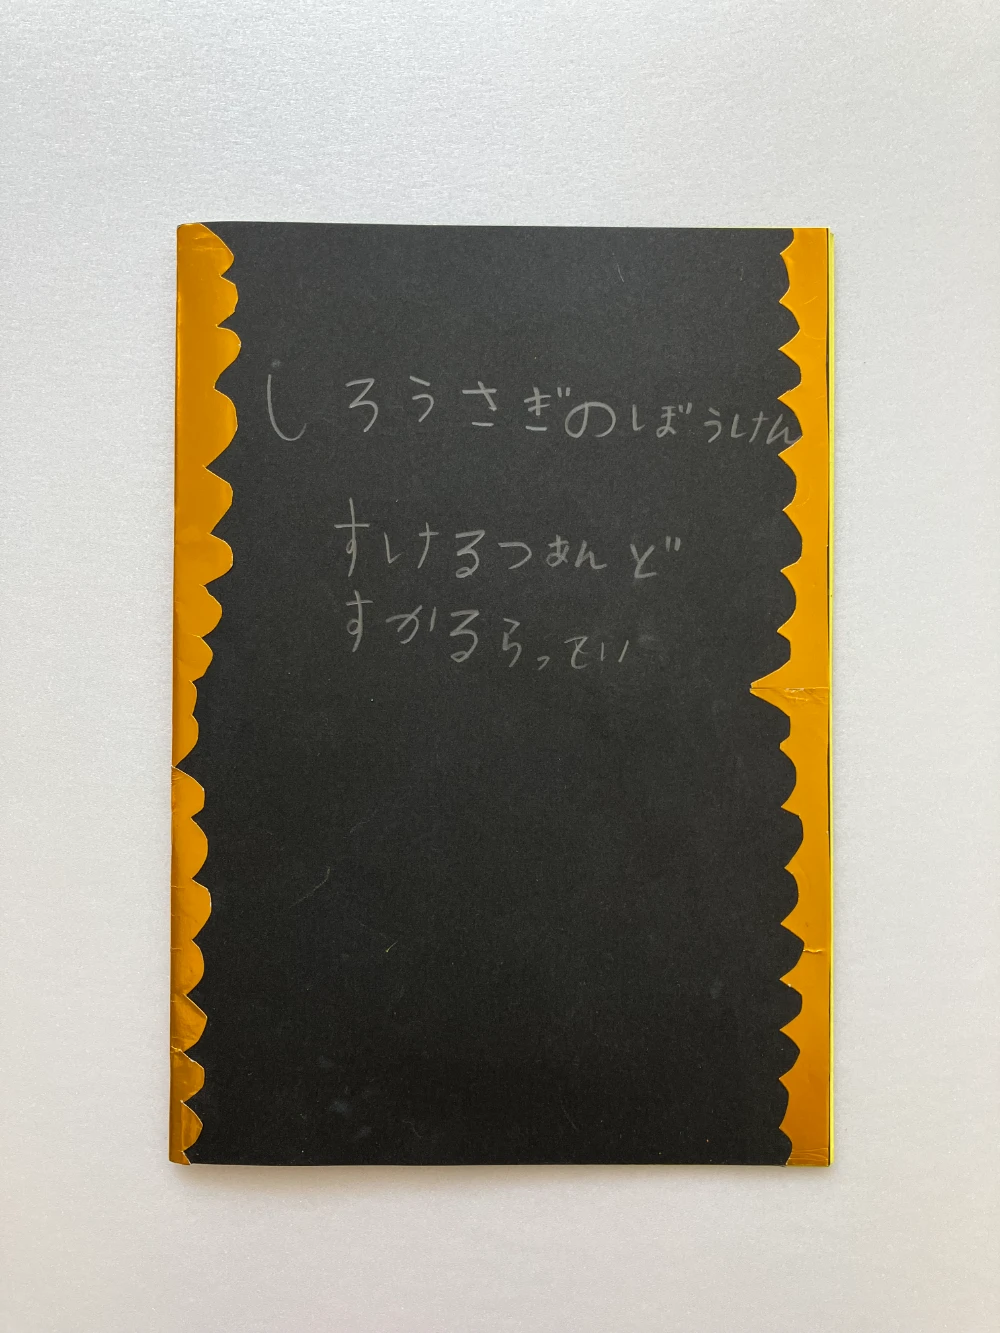 しろうさぎのぼうけん
すけるつあんど
すかるらってい